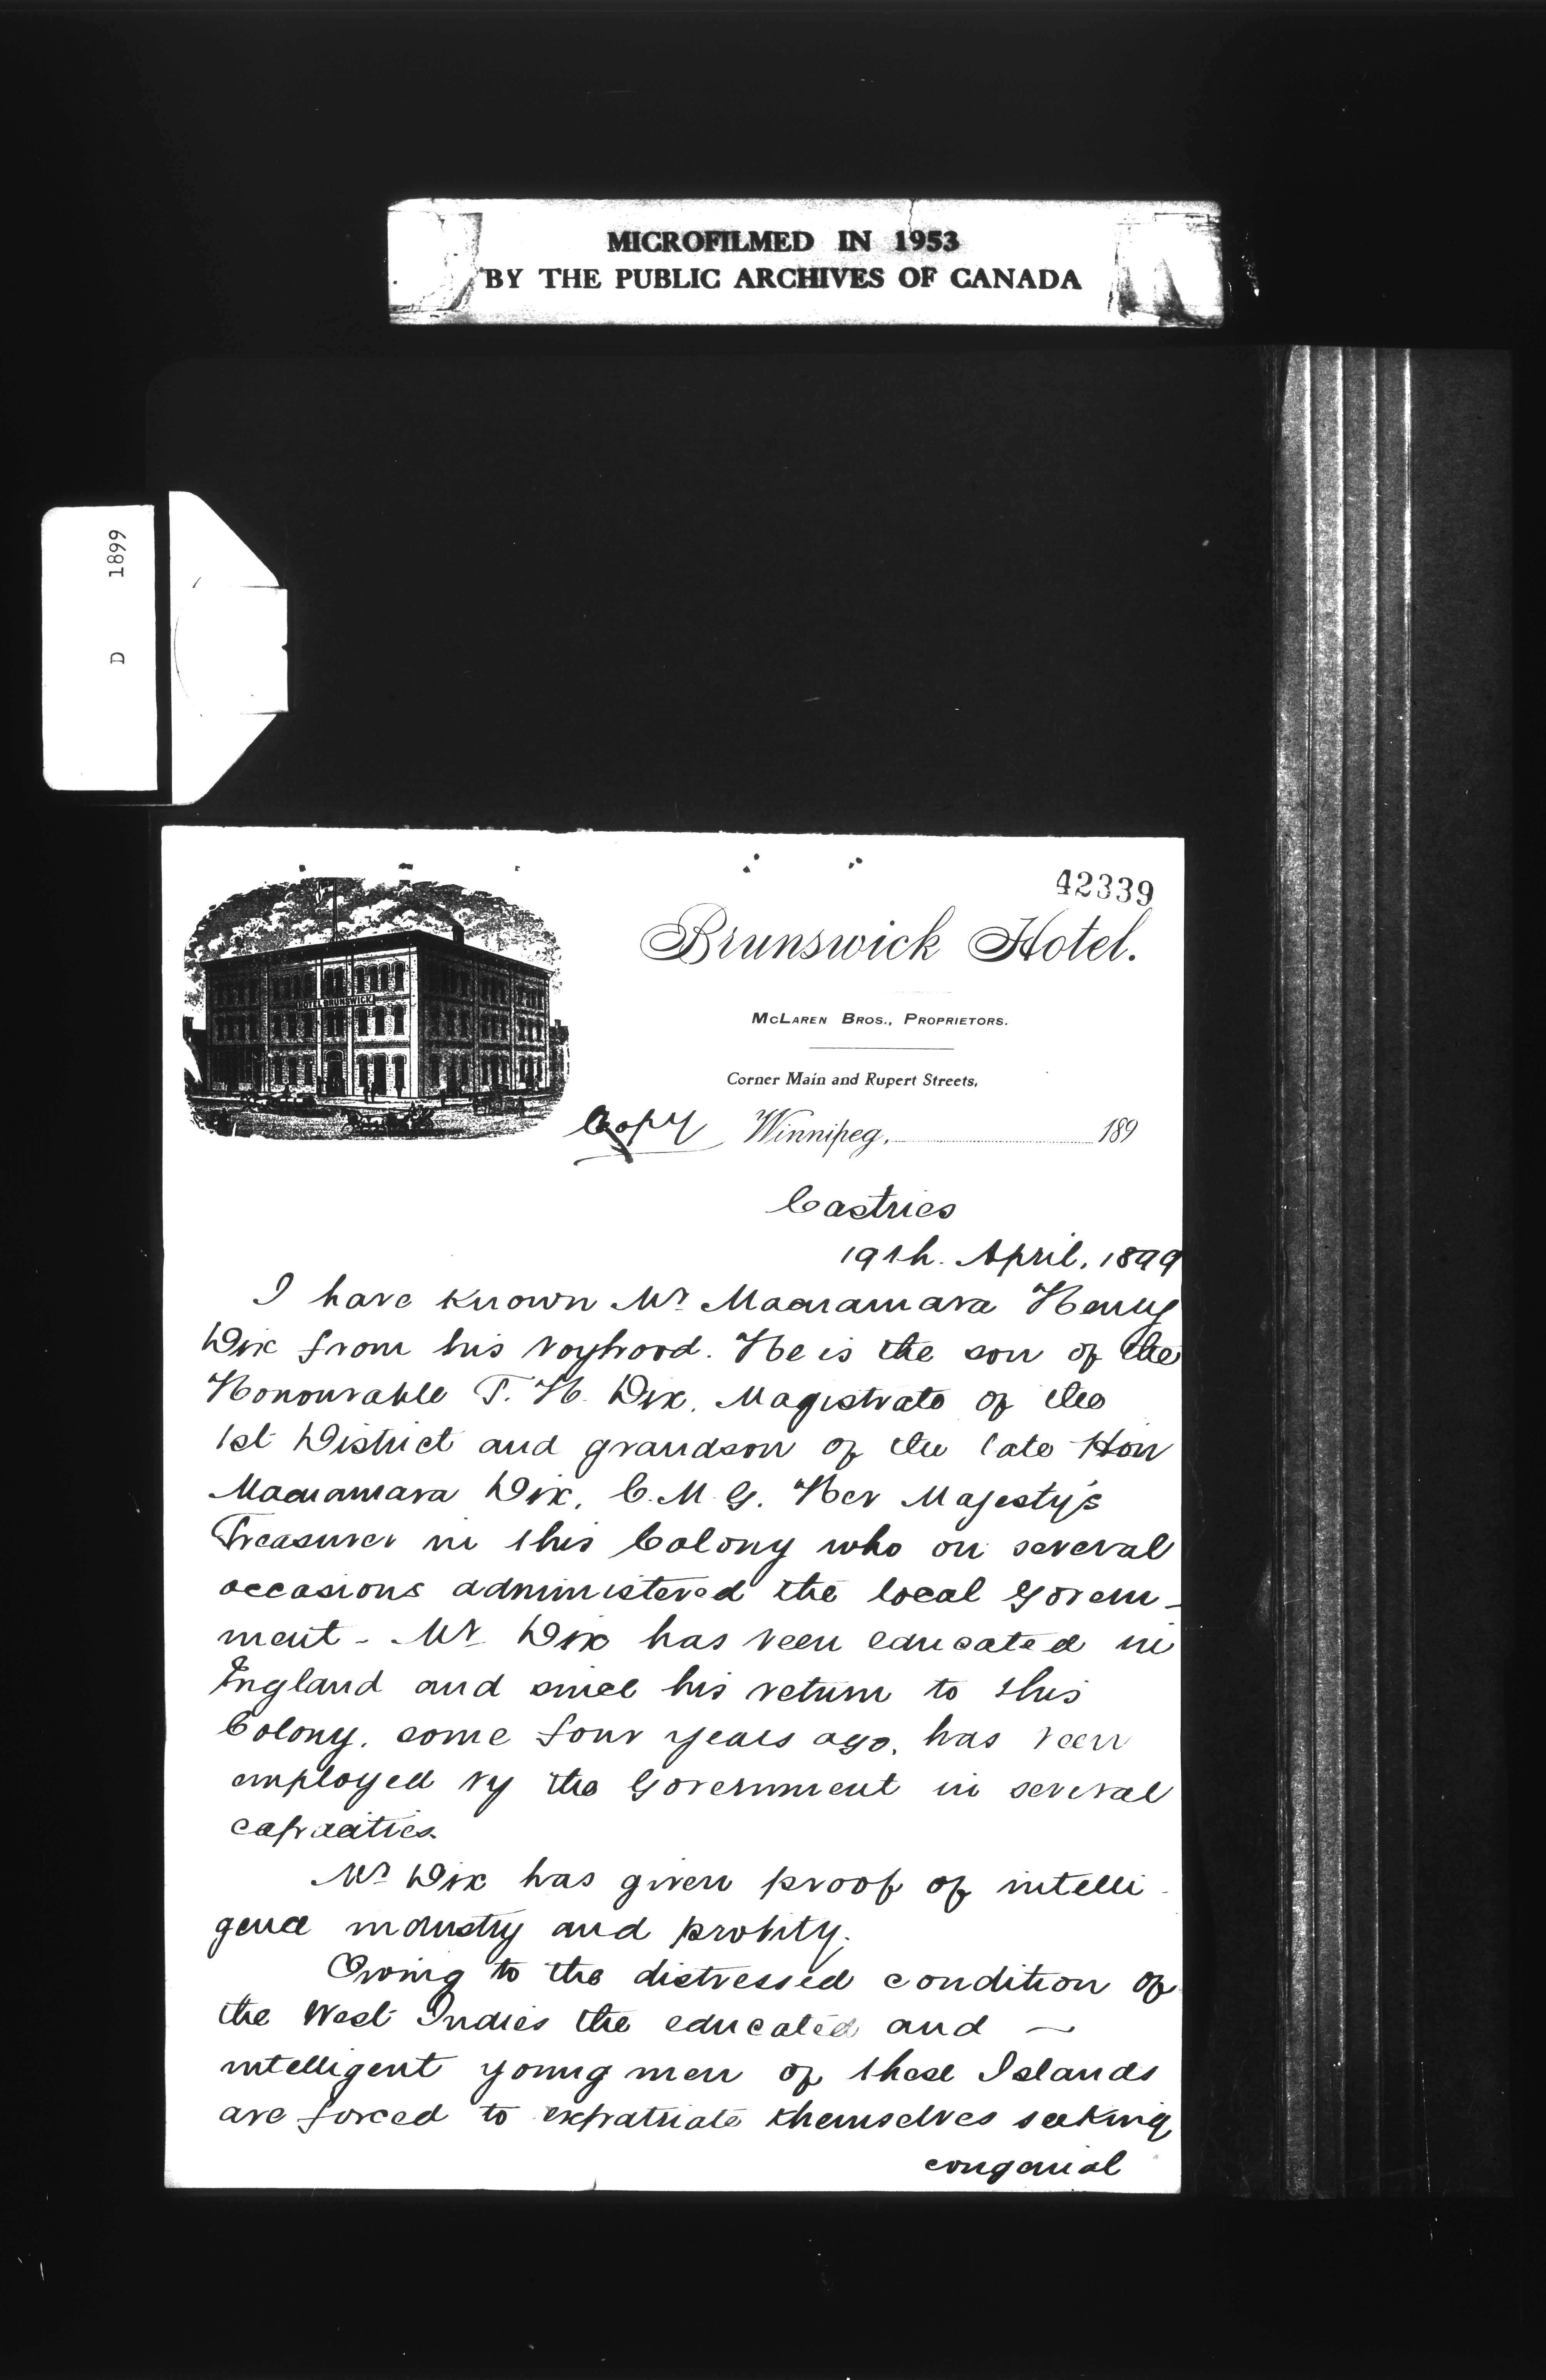 MICROFILMED IN 1953
BY THE PUBLIC ARCHIVES OF CANADA
D 1899
42339
Brunswick Hotel.
HOTEL BRUNSWICK
McLaren Bros., Proprietors.
Corner Main and Rupert Streets,
Copy Winnipeg, 189
Castries
19th. April, 1899
I have known Mr Macnamara Henry
Dix from his boyhood. He is the son of the
Honourable T. H. Dix, Magistrate of the
1st District and grandson of the late Hon
Macnamara Dix, C. M. G. Her Majesty's
Treasurer in this Colony who on several
occasions administered the local Govern-
ment - Mr Dix has been educated in
England and since his return to this
Colony, some four years ago, has been
employed by the Government in several
capacities.
Mr Dix has given proof of intelli-
gence industry and probity.
Owing to the distressed condition of
the West Indies the educated and —
intelligent young men of these Islands
are forced to expatriate themselves seeking
congenial